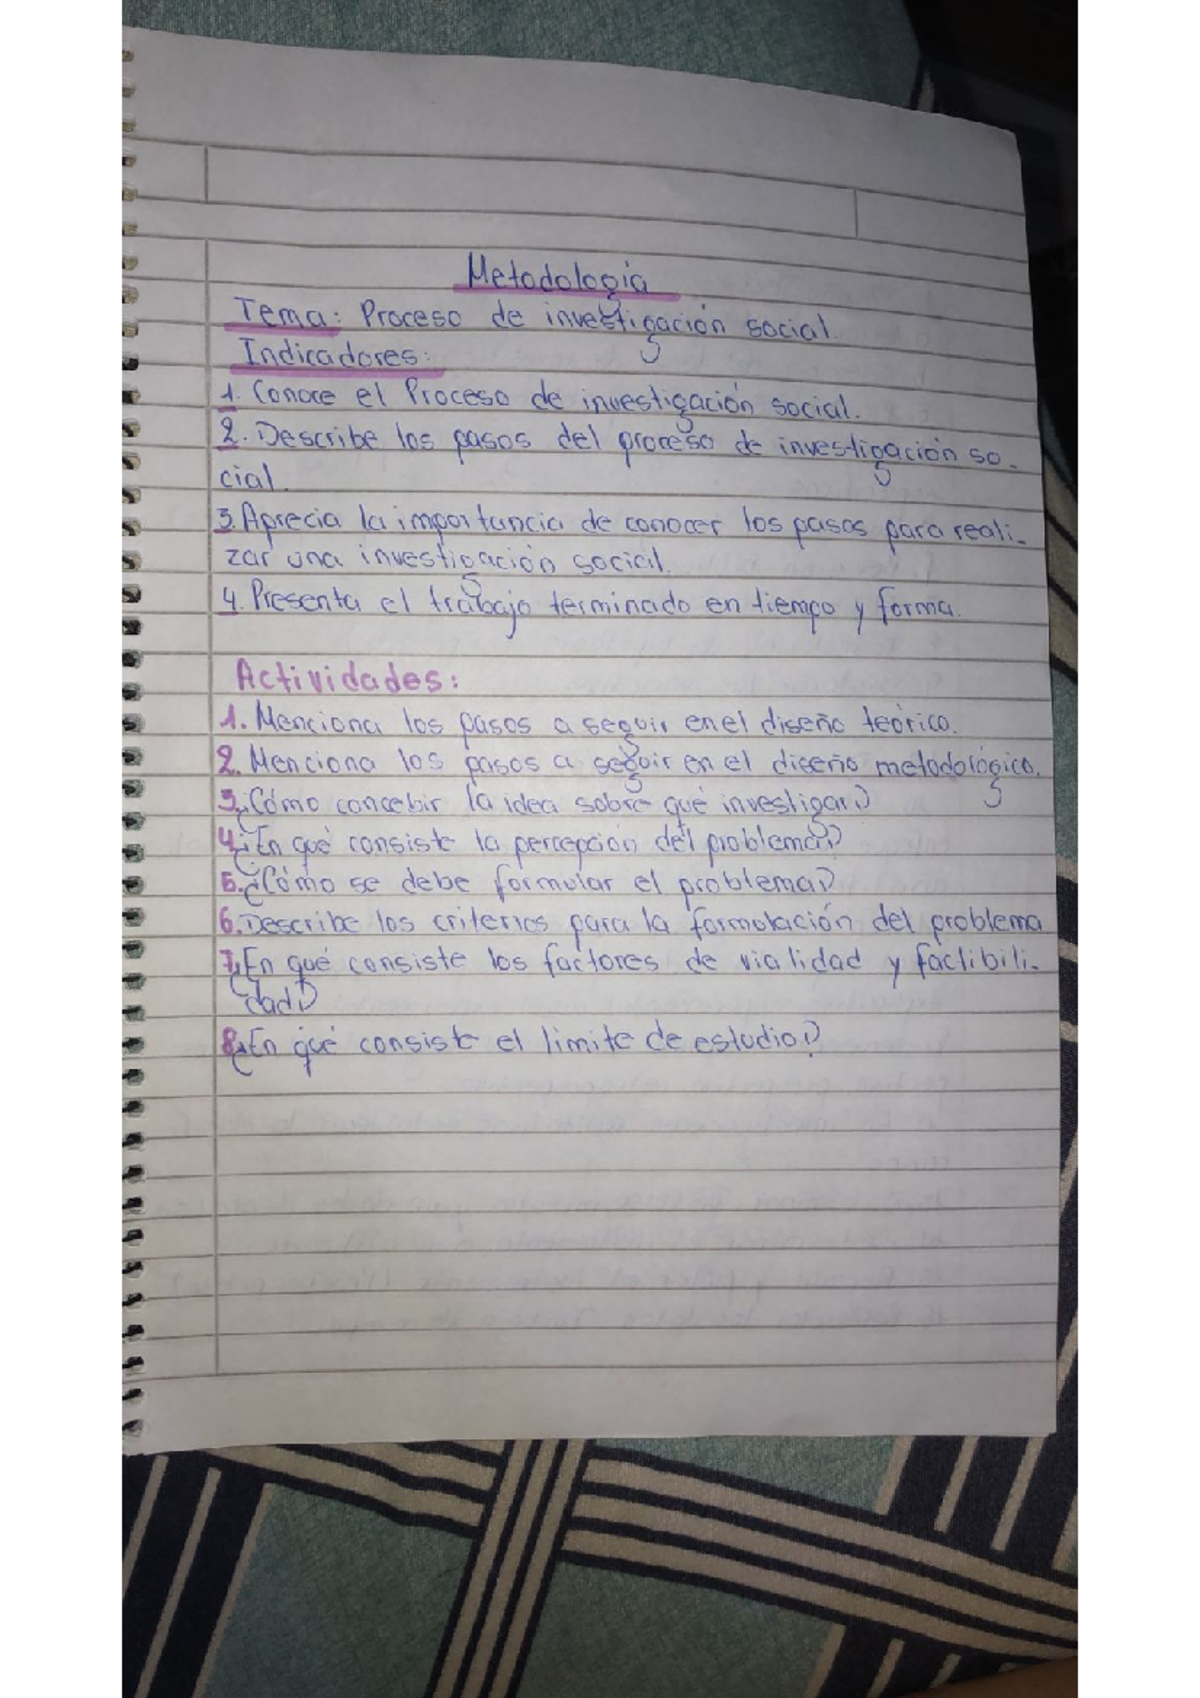 Metodología
Tema: Proceso de investigación social.
Indicadores:
1. Conoce el Proceso de investigación social.
2. Describe los pasos del proceso de investigación so-
cial.
3. Aprecia la importancia de conocer los pasos para reali-
zar una investigación social.
4. Presenta el trabajo terminado en tiempo y forma.
Actividades:
1. Menciona los pasos a seguir en el diseño teórico.
2. Menciona los pasos a seguir en el diseño metodológico.
3. ¿Cómo concebir la idea sobre qué investigar?
4. ¿En qué consiste la percepción del problema?
5. ¿Cómo se debe formular el problema?
6. Describe los criterios para la formulación del problema
7. ¿En qué consiste los factores de vialidad y factibili-
dad?
8. ¿En qué consiste el limite de estudio?